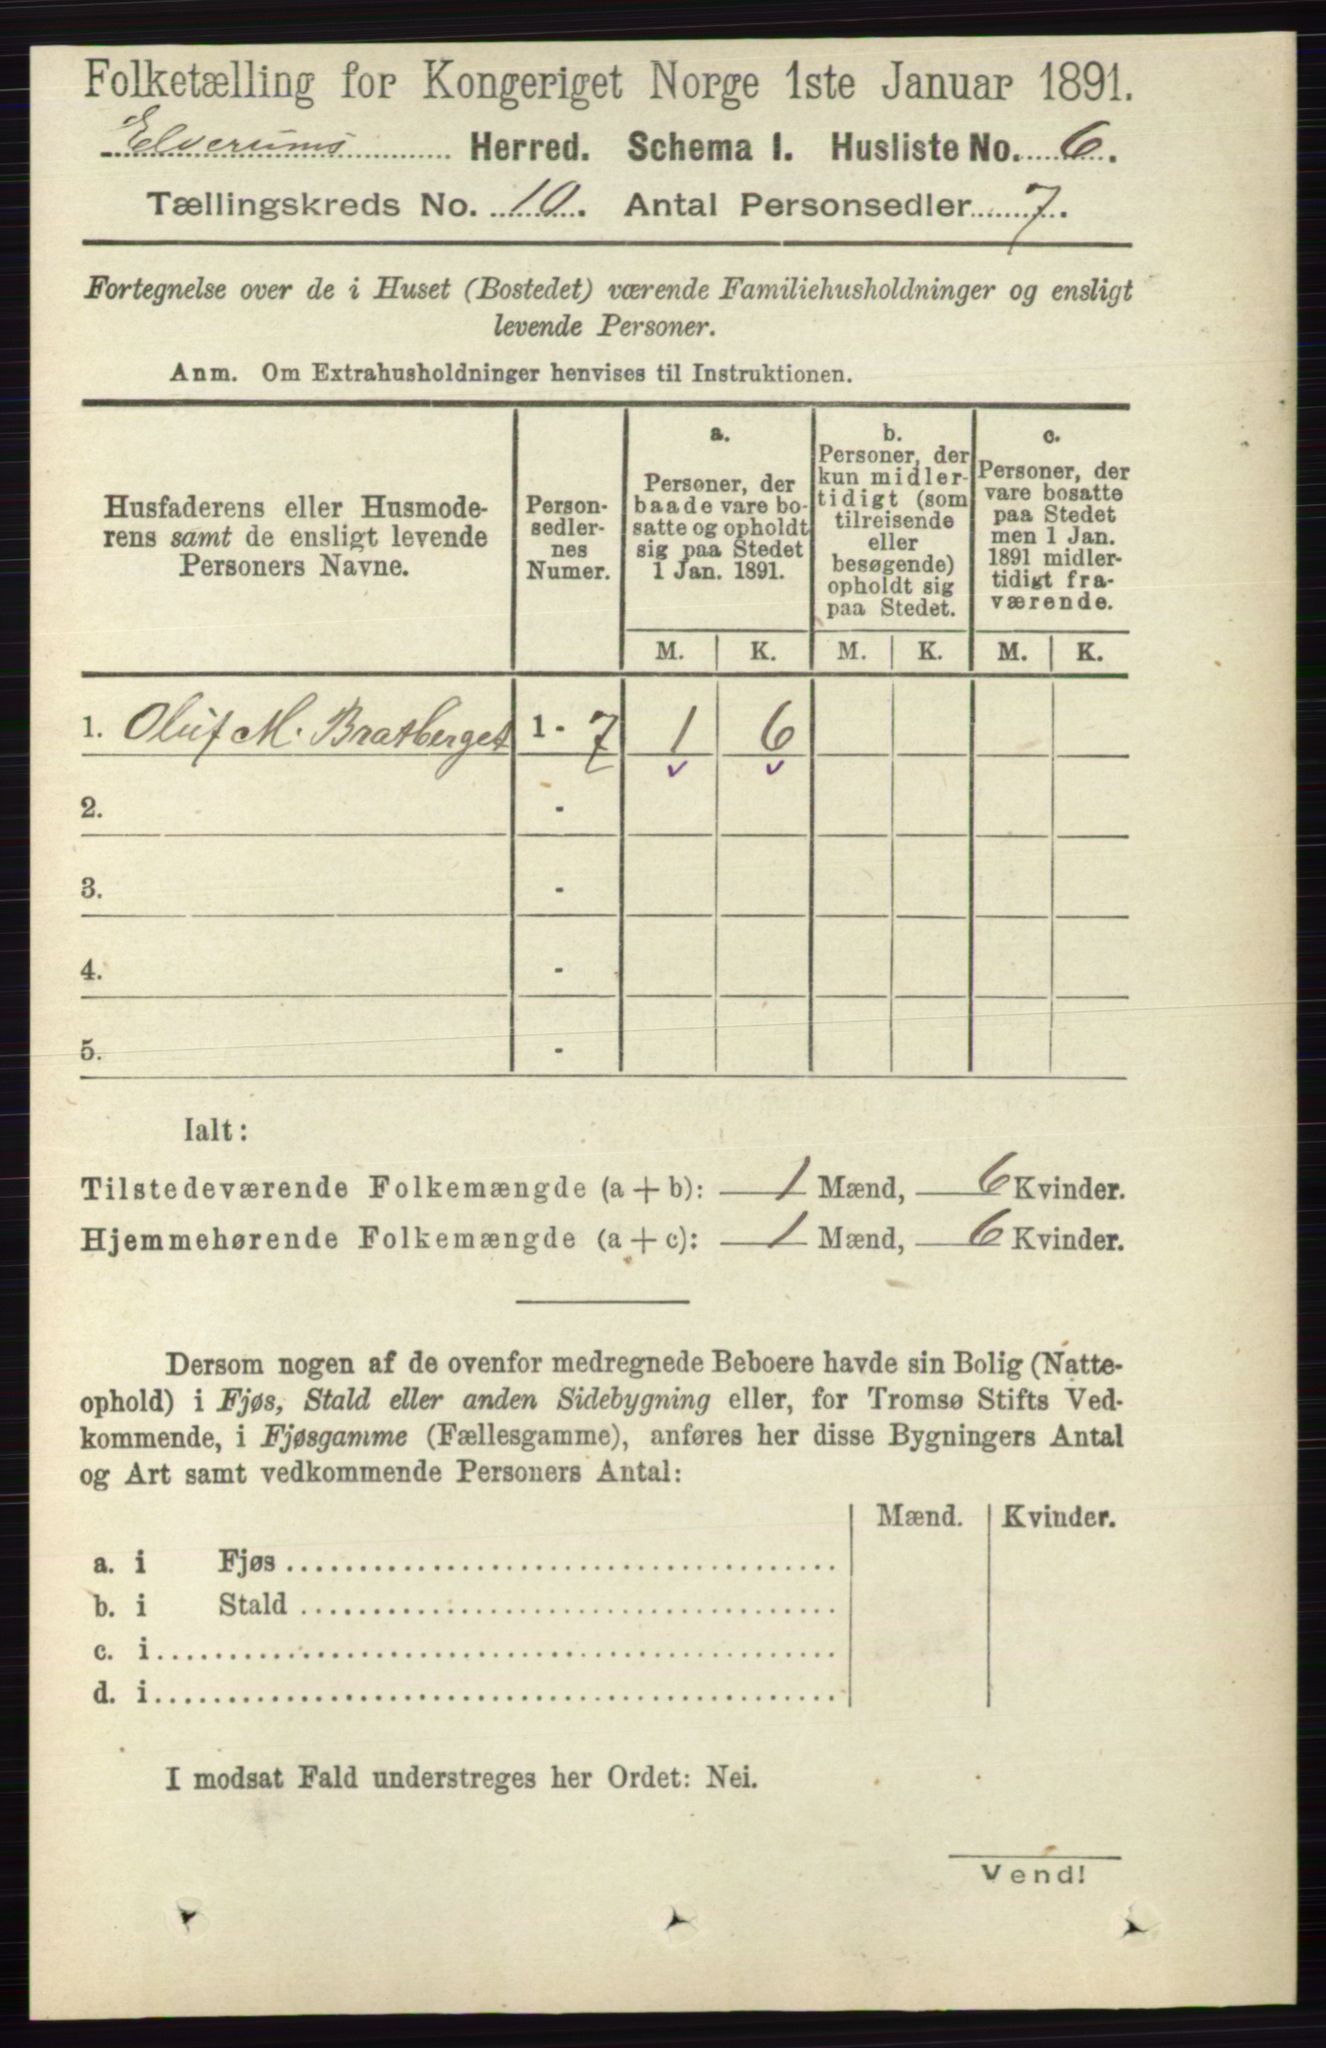 Folketælling for Kongeriget Norge 1ste Januar 1891.
Elverums Herred. Schema I. Husliste No. 6.
Tællingskreds No. 10. Antal Personsedler 7.
Fortegnelse over de i Huset (Bostedet) værende Familiehusholdninger og ensligt
levende Personer.
Anm. Om Extrahusholdninger henvises til Instruktionen.
Husfaderens eller Husmode-
rens samt de ensligt levende
Personers Navne.
Person-
sedler-
nes
Numer.
a.
Personer, der
baade vare bo-
satte og opholdt
sig paa Stedet
1 Jan. 1891.
b.
Personer, der
kun midler-
tidigt (som
tilreisende
eller
besøgende)
opholdt sig
paa Stedet.
c.
Personer, der
vare bosatte
paa Stedet
men 1 Jan.
1891 midler-
tidigt fra-
værende.
M. K. M. K. M. K.
1. Oluf M. Bratberget 1 - 7 1 6
2. -
3. -
4. -
5. -
Ialt:
Tilstedeværende Folkemængde (a + b): 1 Mænd, 6 Kvinder.
Hjemmehørende Folkemængde (a + c): 1 Mænd, 6 Kvinder.
Dersom nogen af de ovenfor medregnede Beboere havde sin Bolig (Natte-
ophold) i Fjøs, Stald eller anden Sidebygning eller, for Tromsø Stifts Ved-
kommende, i Fjøsgamme (Fællesgamme), anføres her disse Bygningers Antal
og Art samt vedkommende Personers Antal:
Mænd. Kvinder.
a. i Fjøs
b. i Stald
c. i
d. i
I modsat Fald understreges her Ordet: Nei.
Vend!